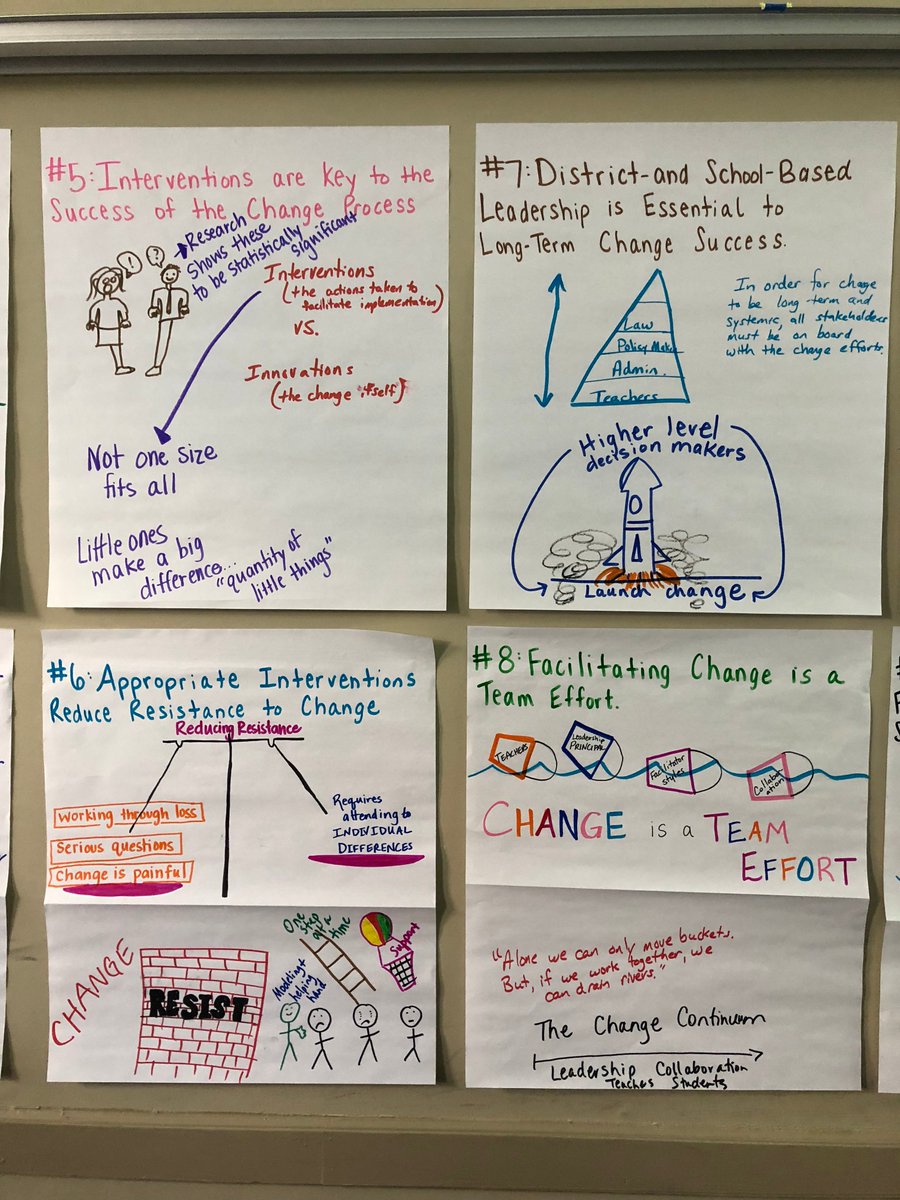 #5: Interventions are key to the
Success of the Change Process
! ?
→Research
shows these
to be statistically
significant
Interventions
(the actions taken to
facilitate implementation)
vs.
Innovations
(the change itself)
Not one size
fits all
Little ones
make a big
difference...
"quantity of
little things"
#7: District-and School-Based
Leadership is Essential to
Long-Term Change Success.
Law
Policy Mak
Admin.
Teachers
In order for change
to be long-term and
systemic, all stakeholders
must be on board
with the change efforts.
Higher level
decision makers
Launch change
#6: Appropriate Interventions
Reduce Resistance to Change
Reducing Resistance
Working through loss
Serious questions
Change is painful
Requires
attending to
INDIVIDUAL
DIFFERENCES
CHANGE
RESIST
Modeling+
helping
hand
One
step
at a
time
Support
#8: Facilitating Change is a
Team Effort.
TEACHERS
Leadership
PRINCIPAL
Facilitator
styles
Collabor
ation
CHANGE is a TEAM
EFFORT
"Alone we can only move buckets.
But, if we work together, we
can drain rivers."
The Change Continuum
Leadership Collaboration
Teaches Students